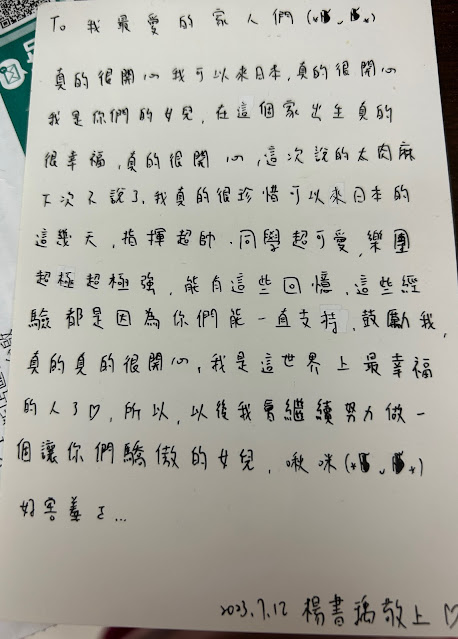 To 我最愛的家人們(*ˇˇ*)
真的很開心我可以來日本,真的很開心
我是你們的女兒,在這個家出生真的
很幸福,真的很開心,這次說的太肉麻
下次不說了,我真的很珍惜可以來日本的
這幾天,指揮超帥.同學超可愛,樂團
超極超極強,能有這些回憶,這些經
驗都是因為你們能一直支持,鼓勵我,
真的真的很開心,我是這世界上最幸福
的人了♡,所以,以後我會繼續努力做一
個讓你們驕傲的女兒,啾咪(*ˇˇ*)
好害羞ㄛ...
2023.7.12 楊書瑀敬上♡